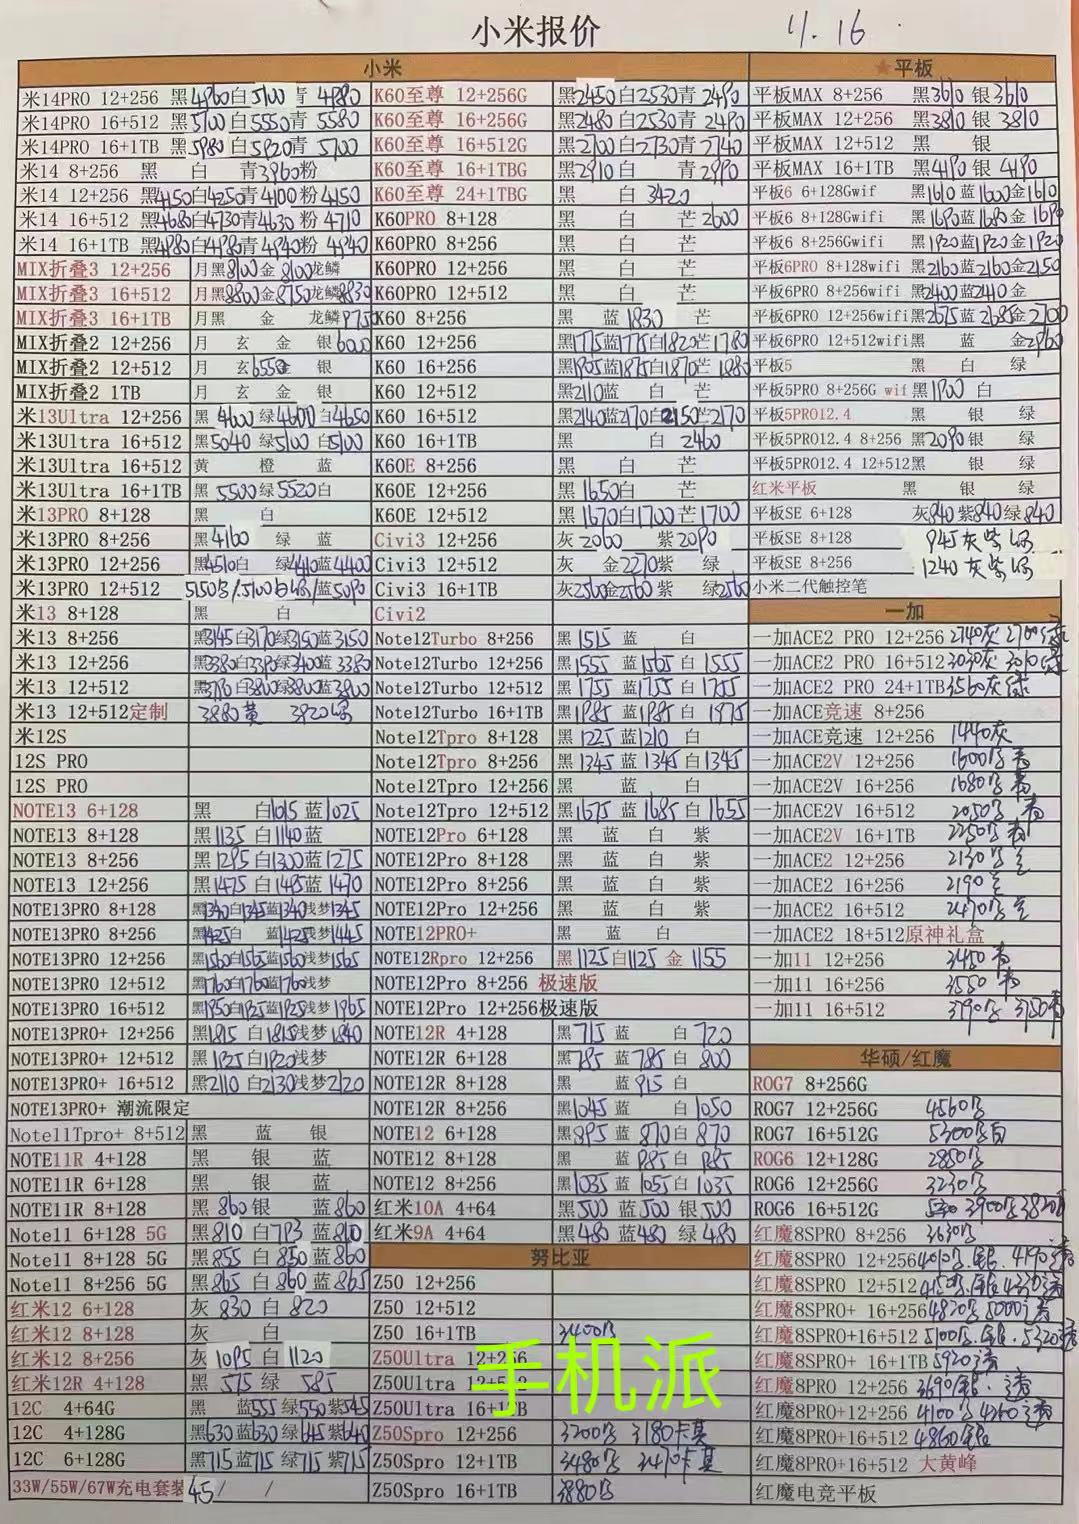 小米报价
11.16
小米
米14PRO 12+256 黑4960白5100青4980
米14PRO 16+512 黑5700白5550青5580
米14PRO 16+1TB 黑5980白5920青5700
米14 8+256 黑 白 青3960粉
米14 12+256 黑4150白4250青4100粉4150
米14 16+512 黑4680白4730青4630粉4710
米14 16+1TB 黑4980白4980青4940粉4940
MIX折叠3 12+256 月黑8100金8100龙鳞
MIX折叠3 16+512 月黑8800金8750龙鳞8830
MIX折叠3 16+1TB 月黑 金 龙鳞9750
MIX折叠2 12+256 月 玄 金 银6000
MIX折叠2 12+512 月 玄6550 银
MIX折叠2 1TB 月 玄 金 银
米13Ultra 12+256 黑4600绿4600白4650
米13Ultra 16+512 黑5040绿5100白5100
米13Ultra 16+512 黄 橙 蓝
米13Ultra 16+1TB 黑5500绿5520白
米13PRO 8+128 黑 白
米13PRO 8+256 黑4160 绿 蓝
米13PRO 12+256 黑4510白 绿4410蓝4400
米13PRO 12+512
米13 8+128 黑 白
米13 8+256 黑3145白3170绿3150蓝3150
米13 12+256 黑3380白3390绿3400蓝3380
米13 12+512
米13 12+512定制 3880黄 3920绿
米12S
12S PRO
12S PRO
NOTE13 6+128 黑 白1015蓝1025
NOTE13 8+128 黑1135白1140蓝
NOTE13 8+256 黑1295白1300蓝1275
NOTE13 12+256 黑1475白1495蓝1470
NOTE13PRO 8+128 黑1340白1345蓝1340浅梦1345
NOTE13PRO 8+256 黑1425白 蓝1425浅梦1445
NOTE13PRO 12+256 黑1560白1565蓝1560浅梦1565
NOTE13PRO 12+512 黑1760白1760蓝1760浅梦
NOTE13PRO 16+512 浅梦1965
NOTE13PRO+ 12+256 黑1815白1815浅梦1840
NOTE13PRO+ 12+512 黑1925白1920浅梦
NOTE13PRO+ 16+512 黑2110白2130浅梦2120
NOTE13PRO+ 潮流限定
Note11Tpro+ 8+512 黑 蓝 银
NOTE11R 4+128 黑 银 蓝
NOTE11R 6+128 黑 银 蓝
NOTE11R 8+128 黑860银 蓝860
Note11 6+128 5G 黑810白793蓝810
Note11 8+128 5G 黑855白850蓝860
Note11 8+256 5G 黑865白860蓝865
红米12 6+128 灰830白820
红米12 8+128 灰 白
红米12 8+256 灰1095白1120
红米12R 4+128 黑575绿585
12C 4+64G 黑 蓝555绿550紫545
12C 4+128G 黑630蓝630绿645紫640
12C 6+128G 黑715蓝715绿715紫715
33W/55W/67W充电套装 45/ /
K60至尊 12+256G 黑2450白2530青2490
K60至尊 16+256G 黑2480白2530青2490
K60至尊 16+512G 黑2700白2730青2740
K60至尊 16+1TBG 黑2910白 青2990
K60至尊 24+1TBG 黑 白3420
K60PRO 8+128 黑 白 芒2600
K60PRO 8+256 黑 白 芒
K60PRO 12+256 黑 白 芒
K60PRO 12+512 黑 白 芒
K60 8+256 黑 蓝1830 芒
K60 12+256 黑1775蓝1775白1820芒1780
K60 16+256 黑1905蓝1875白1870芒1880
K60 12+512 黑2110蓝 白 芒
K60 16+512 黑2140蓝2170白2150芒2170
K60 16+1TB 黑 白2460
K60E 8+256 黑 白 芒
K60E 12+256 黑1650白 芒
K60E 12+512 黑1670白1700芒1700
Civi3 12+256 灰2060 紫2090
Civi3 12+512 灰 金2270紫 绿
Civi3 16+1TB 灰2560金2560紫 绿2560
Civi2
Note12Turbo 8+256 黑1515蓝 白
Note12Turbo 12+256 黑1555蓝1565白1555
Note12Turbo 12+512 黑1755蓝1755白1755
Note12Turbo 16+1TB 黑1985蓝1985白1975
Note12Tpro 8+128 黑1225蓝1210白
Note12Tpro 8+256 黑1345蓝1345白1345
Note12Tpro 12+256 黑 蓝 白
Note12Tpro 12+512 黑1675蓝1685白1655
NOTE12Pro 6+128 黑 蓝 白 紫
NOTE12Pro 8+128 黑 蓝 白 紫
NOTE12Pro 8+256 黑 蓝 白 紫
NOTE12Pro 12+256 黑 蓝 白 紫
NOTE12PRO+ 黑 蓝 白
NOTE12Rpro 12+256 黑1125白1125金1155
NOTE12Pro 8+256 极速版
NOTE12Pro 12+256极速版
NOTE12R 4+128 黑715蓝 白720
NOTE12R 6+128 黑785蓝785白800
NOTE12R 8+128 黑 蓝915白
NOTE12R 8+256 黑1045蓝 白1050
NOTE12 6+128 黑895蓝870白870
NOTE12 8+128 黑 蓝985白985
NOTE12 8+256 黑1035蓝1055白1035
红米10A 4+64 黑500蓝500银500
红米9A 4+64 黑480蓝480绿480
努比亚
Z50 12+256
Z50 12+512
Z50 16+1TB 3400
Z50Ultra 12+256
Z50Ultra 12+512
Z50Ultra 16+1TB
Z50Spro 12+256 3200 3180卡其
Z50Spro 12+1TB 3480 3470卡其
Z50Spro 16+1TB 3880
手机派
★平板
平板MAX 8+256 黑3610银3610
平板MAX 12+256 黑3810银3810
平板MAX 12+512 黑 银
平板MAX 16+1TB 黑4190银4190
平板6 6+128Gwif 黑1610蓝1600金1610
平板6 8+128Gwifi 黑1690蓝1680金1690
平板6 8+256Gwifi 黑1920蓝1920金1920
平板6PRO 8+128wifi 黑2160蓝2160金2150
平板6PRO 8+256wifi 黑2400蓝2440金
平板6PRO 12+256wifi黑2675蓝2685金2700
平板6PRO 12+512wifi黑 蓝 金2960
平板5 黑 白 绿
平板5PRO 8+256G wif 黑1900白
平板5PRO12.4 黑 银 绿
平板5PRO12.4 8+256 黑2090银 绿
平板5PRO12.4 12+512黑 银 绿
红米平板 黑 银 绿
平板SE 6+128 灰840紫840绿840
平板SE 8+128 945灰紫绿
平板SE 8+256 1240灰紫绿
小米二代触控笔
一加
一加ACE2 PRO 12+256 2740灰 2700绿
一加ACE2 PRO 16+512 3030灰 3010绿
一加ACE2 PRO 24+1TB 3560灰绿
一加ACE竞速 8+256
一加ACE竞速 12+256 1440灰
一加ACE2V 12+256 1600
一加ACE2V 16+256 1680
一加ACE2V 16+512 2050
一加ACE2V 16+1TB 2250
一加ACE2 12+256 2130
一加ACE2 16+256 2190
一加ACE2 16+512 2470
一加ACE2 18+512原神礼盒
一加11 12+256 3450
一加11 16+256 3550
一加11 16+512 3790 3750
华硕/红魔
ROG7 8+256G
ROG7 12+256G 4560
ROG7 16+512G 5300
ROG6 12+128G 2850
ROG6 12+256G 3230
ROG6 16+512G
红魔8SPRO 8+256 3630
红魔8SPRO 12+256
红魔8SPRO 12+512
红魔8SPRO+ 16+256 4820 5000
红魔8SPRO+16+512 5100 5320
红魔8SPRO+ 16+1TB 5920
红魔8PRO 12+256 3690
红魔8PRO+12+256 4100 4360
红魔8PRO+16+512 4860
红魔8PRO+16+512 大黄峰
红魔电竞平板